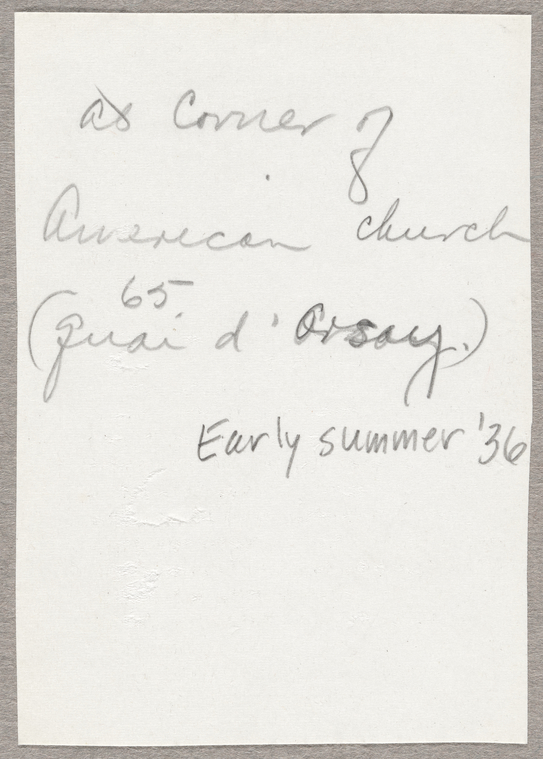 at corner of
American church
65
(Quai d'Orsay.)
Early summer '36